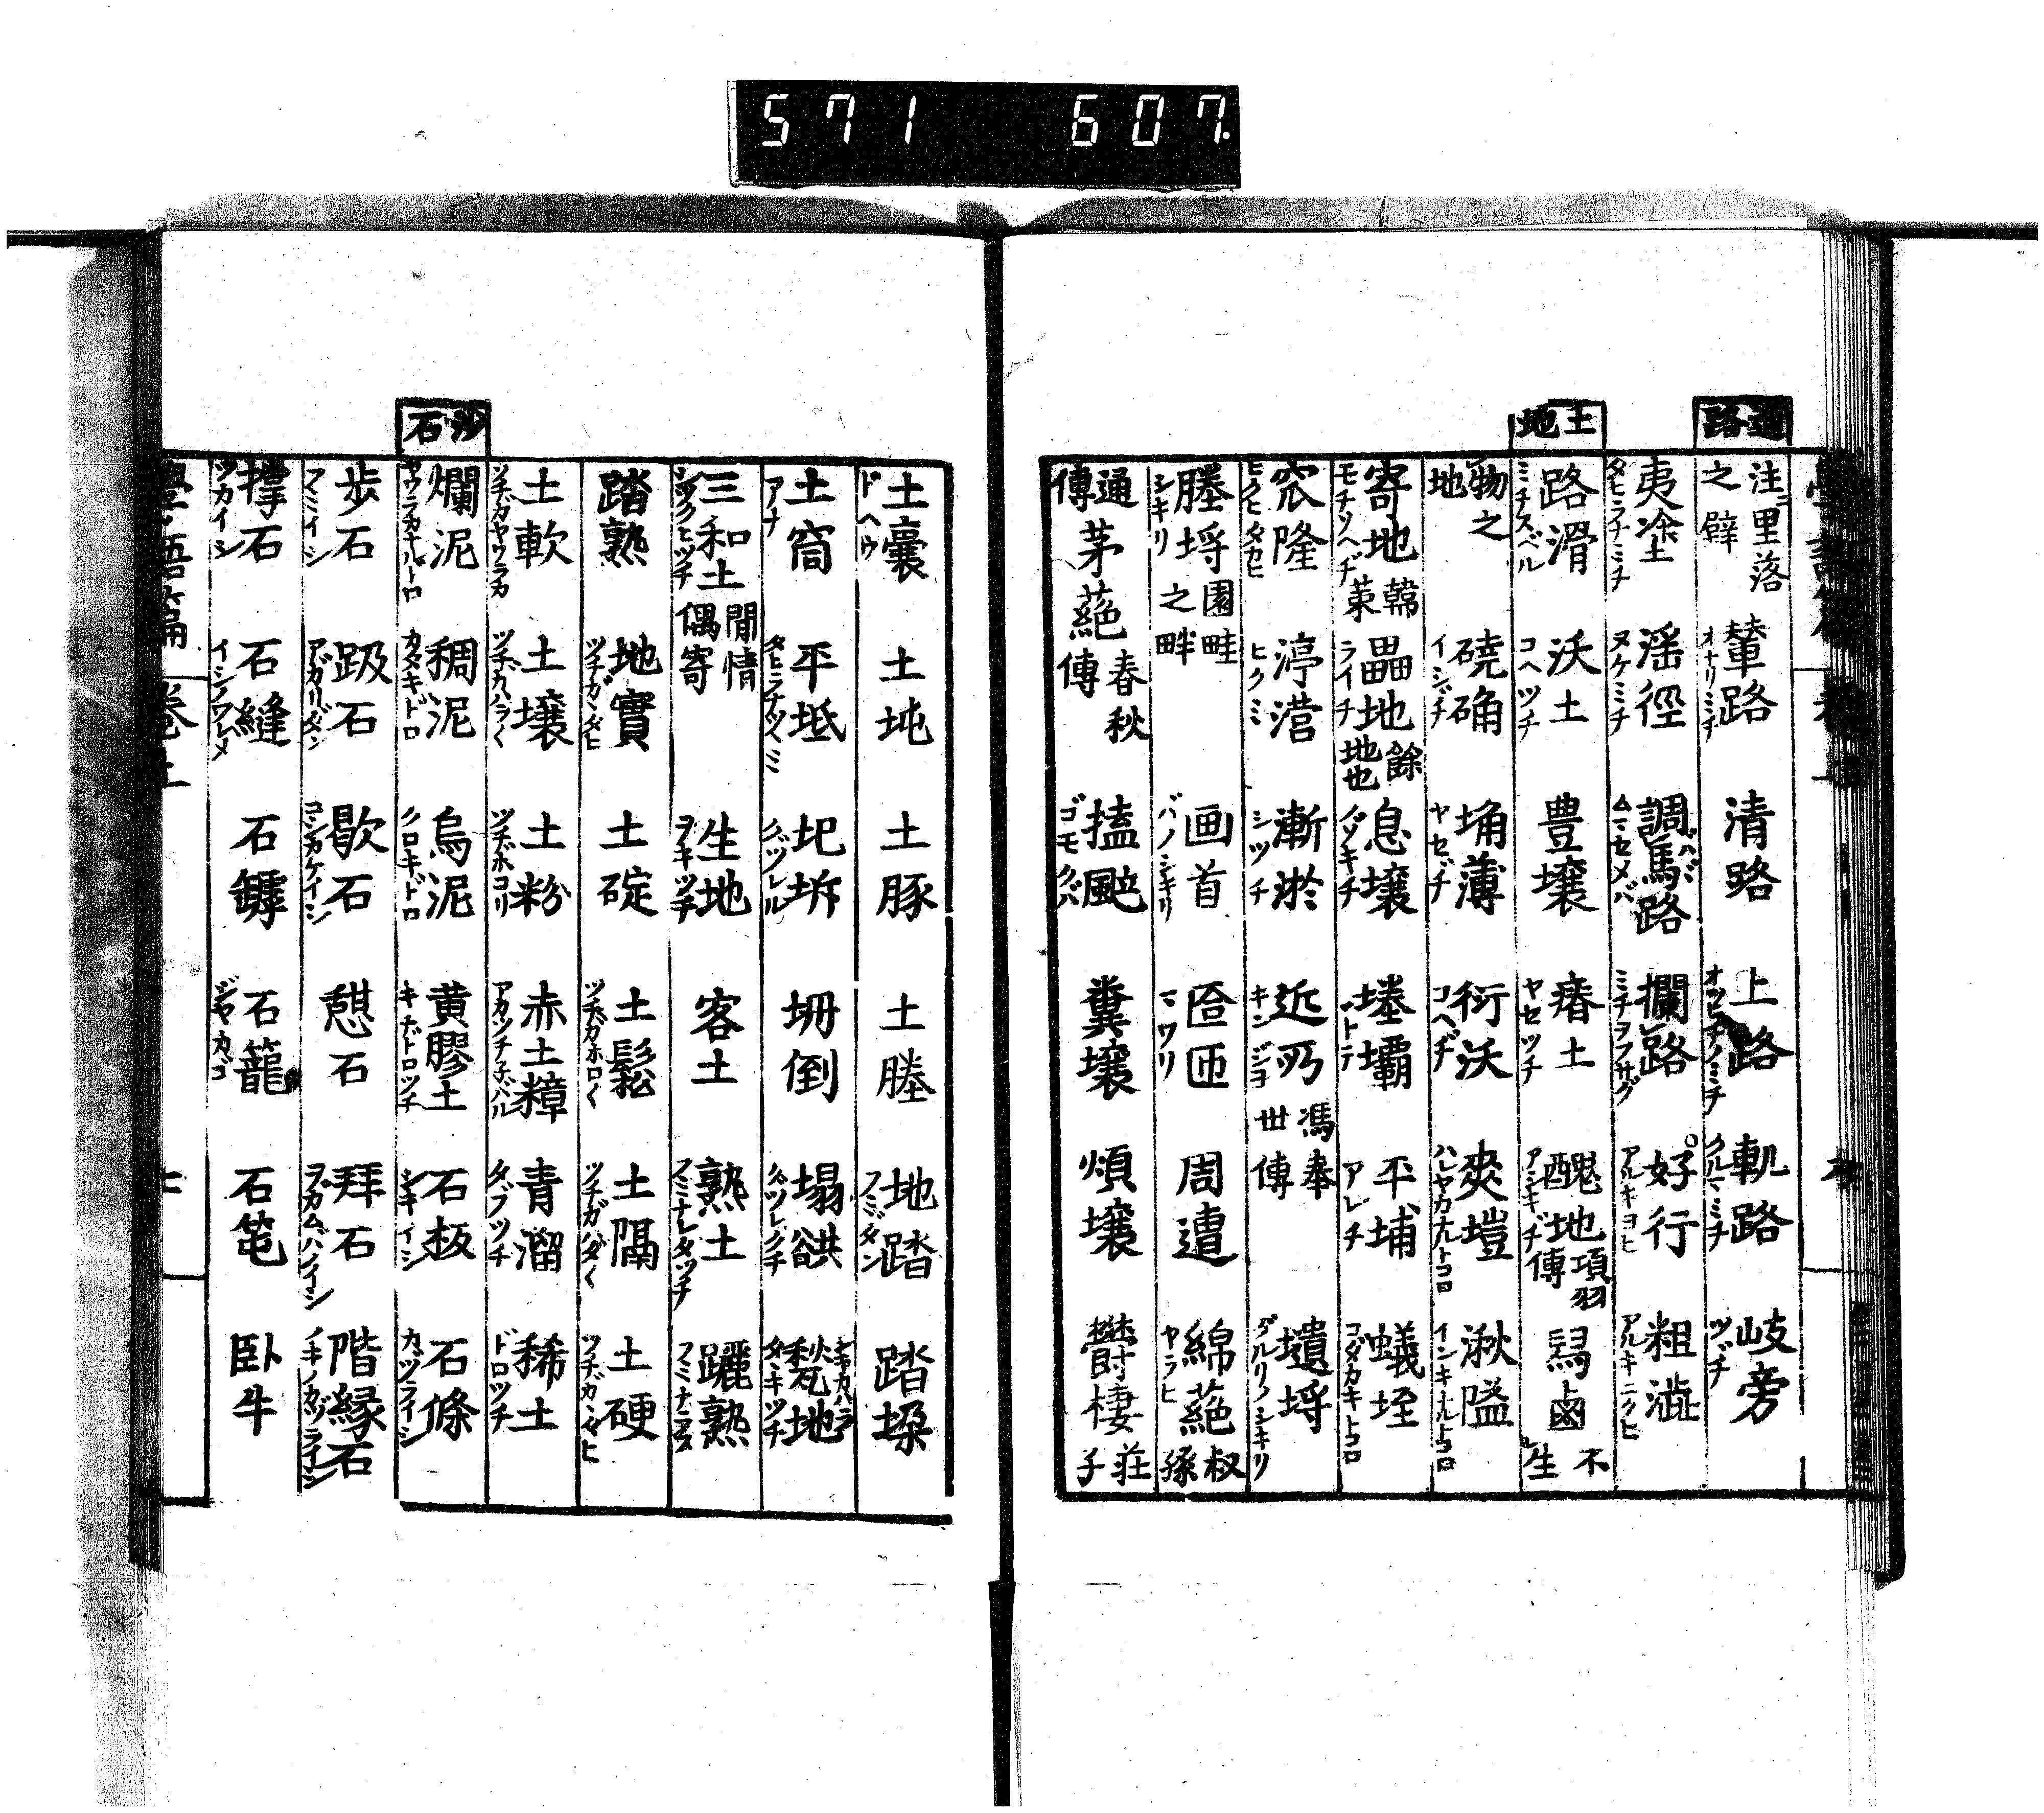 571 607.
道路
土地
注里落之辟 輦路 オナリミチ 清路 上路 オツヒチノミチ 軌路 クルマミチ 岐旁 ツヾチ
夷塗 タヒラナミチ 淫徑 ヌケミチ 調馬路 ムマセメバ 攔路 ミチヲフサグ 好行 アルキヨヒ 粗澁 アルキニクヒ
路滑 ミチスベル 沃土 コヘツチ 豊壤 瘠土 ヤセツチ 醜地 項羽傳 アシキヂ 舃鹵 不生
物之地 磽确 イシヂ 埆薄 ヤセヂ 衍沃 コヘヂ 爽塏 ハレヤカナルトコロ 湫隘 インキナルトコロ
寄地 韓 モチソヘヂ 畾地 餘地也 ライチ 息壤 平埔 アレチ 蟻垤 コダカキトコロ
窊隆 ヒクヒタカヒ 渟濙 ヒクミ 漸淤 シツチ 近所 馮奉世傳 キンジヨ 壝埒
塍埒 園畦之畔 シキリ 画首 バノシキリ 匼匝 マワリ 周遭 綿蕝 叔孫 ヤラヒ
通傳 茅蕝 春秋傳 搕𩗺 ゴモクバ 糞壤 煩壤 欝棲 莊子
沙石
土囊 ドヘウ 土坉 土豚 土塍 地踏 フミダン 踏垜
土窟 アナ 平坻 タヒラナツヽミ 圮坼 クヅレル 坍倒 塌缺 クヅレクチ 甃地 タヽキツチ
三和土 閒情偶寄 シツクヒツチ 生地 ヲキツチ 客土 熟土 フミナレタツチ 躧熟 フミナラス
踏熟 地實 ツチガヽタヒ 土碇 土鬆 ツチガホロ〱 土隔 土硬 ツチガカタヒ
土軟 ツチガヤワラカ 土壤 ツチガハラ〱 土粉 ツチボコリ 赤土糡 アカツチネバル 青溜 ダブツチ 稀土 ドロツチ
爛泥 ヤワラカナルドロ 稠泥 カタキドロ 烏泥 クロキドロ 黄膠土 キナドロツチ 石板 シキイシ 石條 カヅライシ
歩石 フミイシ 趿石 アガリダン 歇石 コシカケイシ 憇石 拜石 ヲガムバノイシ 階縁石 ノキノカヅライシ
撑石 ツカイシ 石縫 イシノワレメ 石罅 石籠 ジヤカゴ 石笔 卧牛
學語篇 卷上